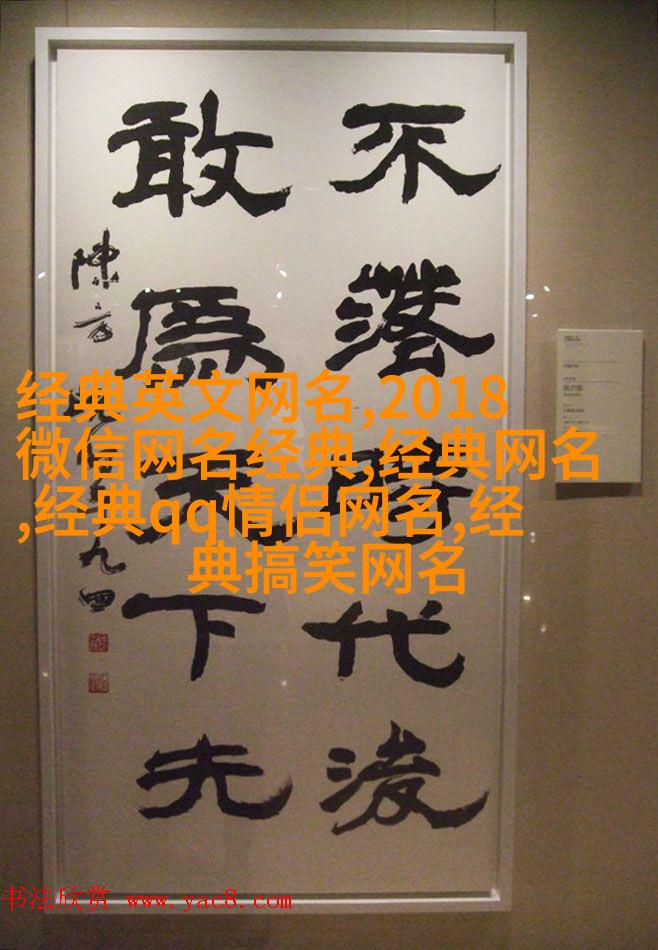 不落時代後
敢爲天下先
经典英文网名,2018
微信网名经典,经典网名
,经典qq情侣网名,经
典搞笑网名
书法欣赏 www.yac8.com